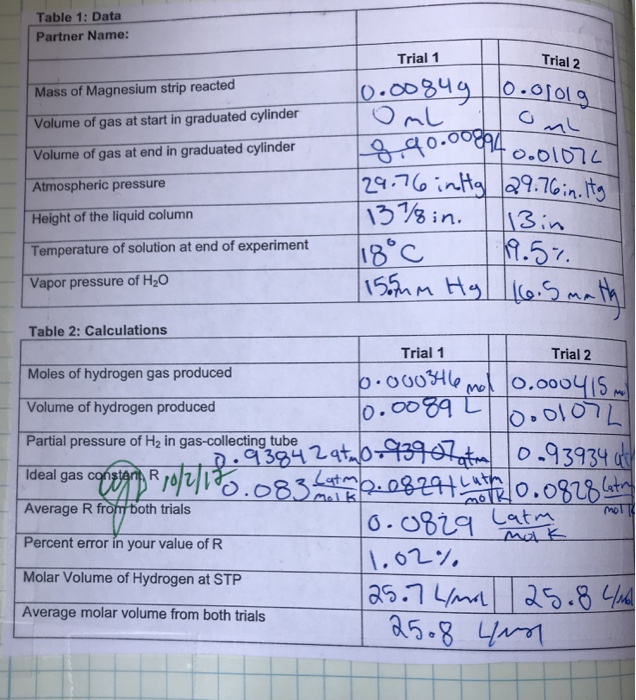 Table 1: Data
Partner Name:
Trial 1 Trial 2
Mass of Magnesium strip reacted 0.0084g 0.0101g
Volume of gas at start in graduated cylinder 0 mL 0 mL
Volume of gas at end in graduated cylinder 8.9 0.0089L 0.0107L
Atmospheric pressure 29.76 inHg 29.76 in.Hg
Height of the liquid column 13 7/8 in. 13 in
Temperature of solution at end of experiment 18°C 19.5
Vapor pressure of H₂O 15.5 mm Hg 16.5 mm Hg
Table 2: Calculations
Trial 1 Trial 2
Moles of hydrogen gas produced 0.000346 mol 0.000415 mol
Volume of hydrogen produced 0.0089 L 0.0107L
Partial pressure of H₂ in gas-collecting tube 0.93842 atm 0.93907 atm 0.93934 at
Ideal gas constant, R 10/2/17 0.083 Latm/molK 0.08291 Latm/molK 0.0828 Latm/mol K
Average R from both trials 0.0829 Latm/mol K
Percent error in your value of R 1.02%
Molar Volume of Hydrogen at STP 25.7 L/mol 25.8 L/mol
Average molar volume from both trials 25.8 L/mol